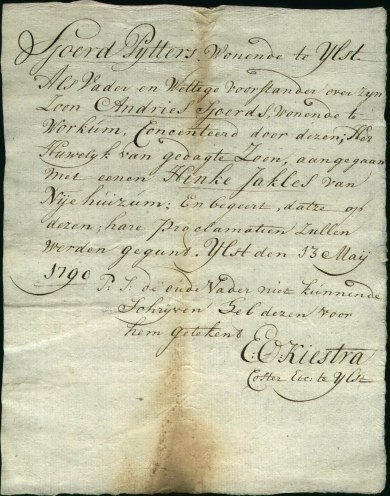 Sjoerd Pytters, Wonende te Ylst
Als Vader en Wettege Voorstander over zyn
Zoon Andries Sjoerds, wonende te
Workum, Concenteerd door dezen; Het
Huwelyk van gedagte Zoon, aangegaan
met eenen Hinke Jakles van
Nije huizum: En begeert, datze op
dezen; hare Proclamatien Zullen
werden gegunt. Ylst den 13 Maij
1790
de oude Vader niet kunnende
Schryven Heb dezen voor
hem getekent
E: D Kiestra
Coster Etc: te Ylst